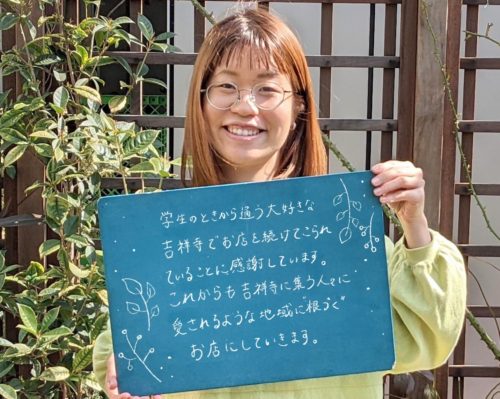 学生のときから通う大好きな
吉祥寺でお店を続けてこられ
ていることに感謝しています。
これからも吉祥寺に集う人々に
愛されるような地域に"根づく"
お店にしていきます。